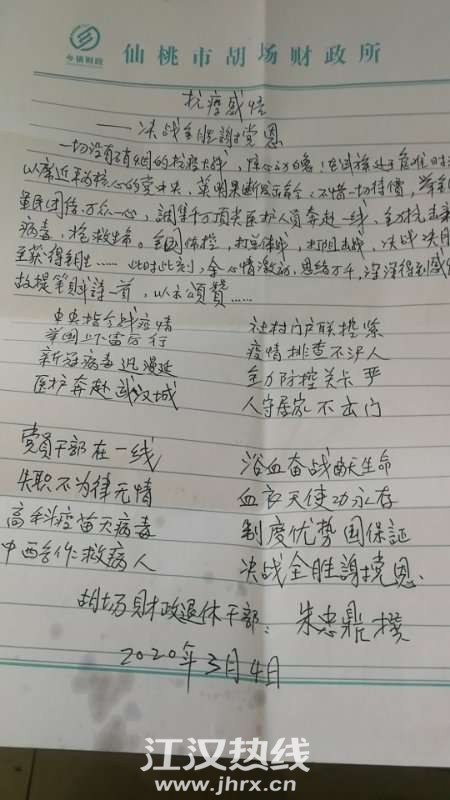 乡镇财政
仙桃市胡场财政所
抗疫感悟
——决战全胜謝党恩
一切没有硝烟的抗疫大战,
以習近平为核心的党中央,英明果断发号令,不惜一切待價,
軍民团结万众一心,調集千万頂尖医护人員奔赴一线,全力抗击新
病毒,抢救生命。全国体控,打总体战,打阻击战,决战决月
至获得全胜……此时此刻,余心情激动,思绪万千,深深得到感
故提筆賦詩一首,以示頌贊……
中央指令战疫情
举国上下雷厉行
新冠病毒迅漫延
医护奔赴武汉城
社村门户联控紧
疫情排查不漏人
全力防控关卡严
人守居家不出门
党員干部在一线
失职不为律无情
高科疫苗灭病毒
中西合作救病人
浴血奋战献生命
血衣天使功永存
制度优势国保証
决战全胜謝党恩.
胡场財政退休干部:朱忠鼎撰
2020年3月4日
江汉热线
www.jhrx.cn